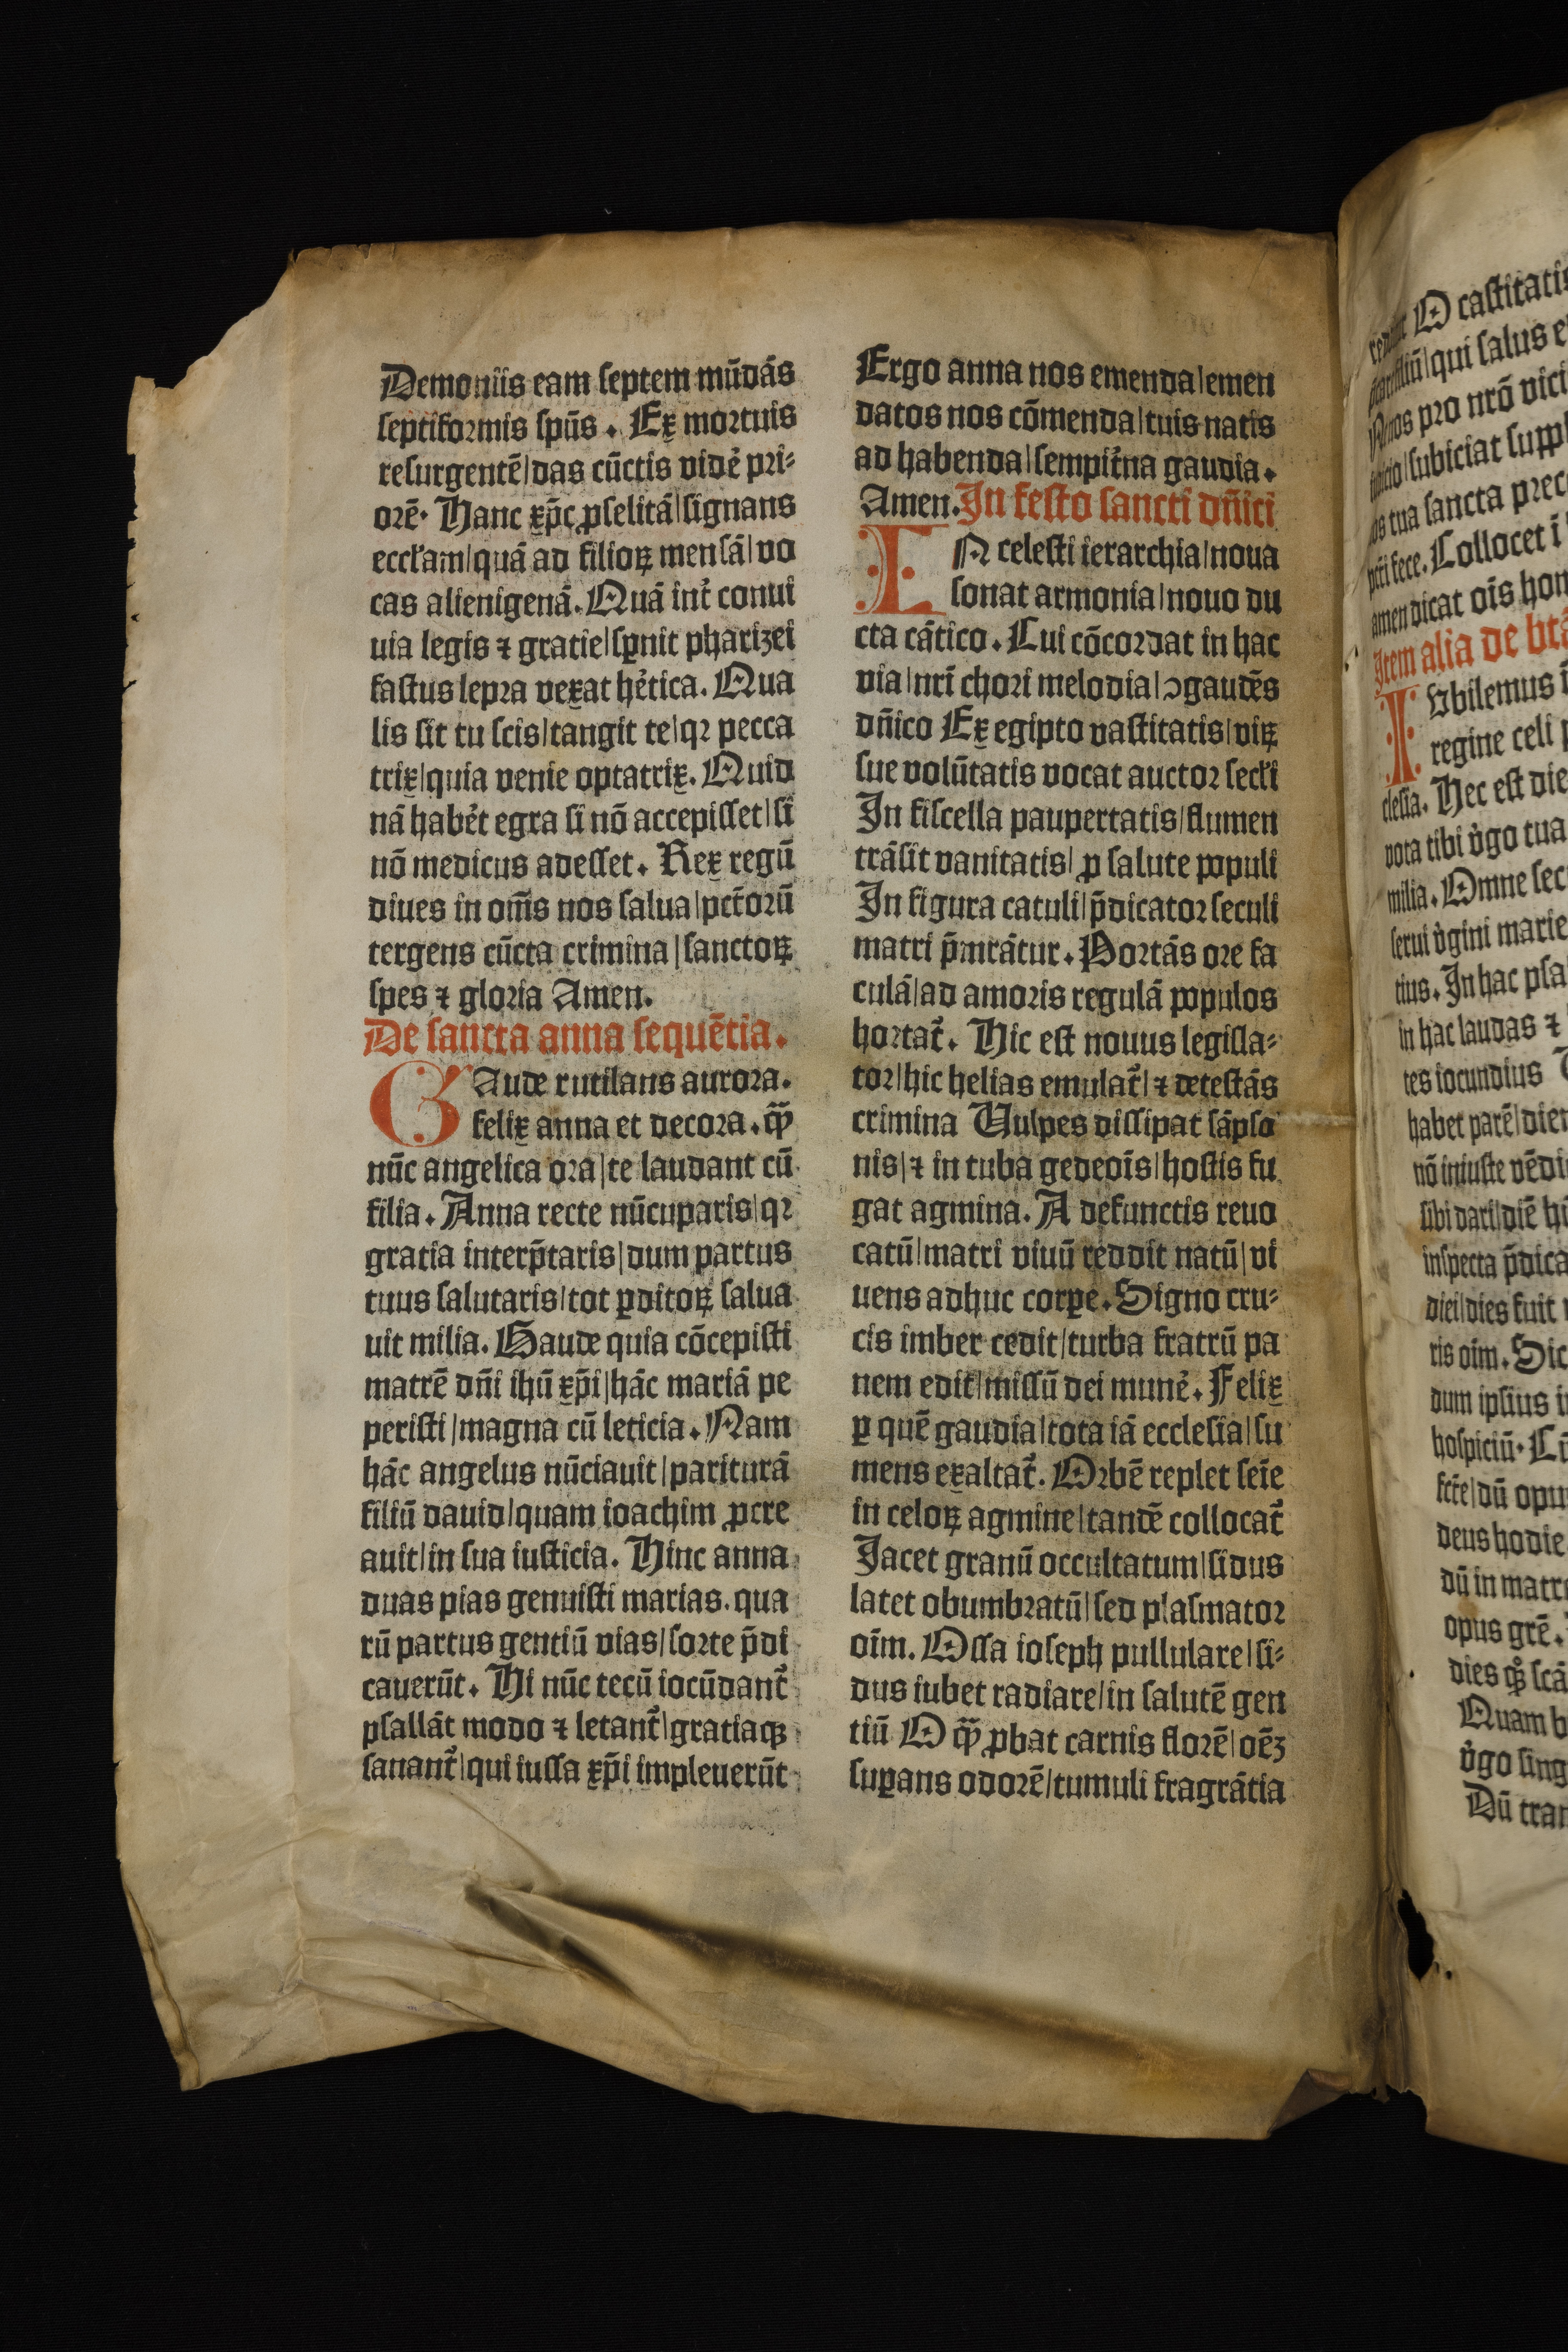 Demoniis eam septem mūdās
septiformis spūs. Ex mortuis
resurgentē|das cūctis vidē pri-
orē. Hanc xp̄c ꝓselitā|signans
eccl̄am|quā ad filioꝝ mensā|vo
cas alienigenā. Quā int̄ conui
uia legis ⁊ gratie|sꝑnit pharizei
fastus lepra vexat hētica. Qua
lis sit tu scis|tangit te|qꝛ pecca
trix|quia venie optatrix. Quid
nā habēt egra si nō accepisset|si
nō medicus adesset. Rex regū
diues in om̄s nos salua|pct̄orū
tergens cūcta crimina|sanctoꝝ
spes ⁊ gloria Amen.
De sancta anna sequētia.
GAude rutilans aurora.
felix anna et decora. qͣ̄
nūc angelica ora|te laudant cū
filia. Anna recte nūcuparis|qꝛ
gratia interp̄taris|dum partus
tuus salutaris|tot ꝑditoꝝ salua
uit milia. Gaude quia cōcepisti
matrē dn̄i ihū xp̄i|hāc mariā pe
peristi|magna cū leticia. Nam
hāc angelus nūciauit|pariturā
filiū dauid|quam ioachim ꝓcre
auit|in sua iusticia. Hinc anna
duas pias genuisti marias. qua
rū partus gentiū vias|sorte p̄di
cauerūt. Hi nūc tecū iocūdant̄
psallāt modo ⁊ letant̄|gratiaqꝫ
sanant̄|qui iussa xp̄i impleuerūt
Ergo anna nos emenda|emen
datos nos cōmenda|tuis natis
ad habenda|sempit̄na gaudia.
Amen. In festo sancti dn̄ici
IN celesti ierarchia|noua
sonat armonia|nouo du
cta cātico. Cui cōcordat in hac
via|nr̄i chori melodia|ꝯgaudēs
dn̄ico Ex egipto vastitatis|viꝝ
sue volūtatis vocat auctor secl̄i
In fiscella paupertatis|flumen
trāsit vanitatis|ꝓ salute populi
In figura catuli|p̄dicator seculi
matri p̄mrātur. Portās ore fa
culā|ad amoris regulā populos
hortat̄. Hic est nouus legisla-
tor|hic helias emulat̄|⁊ detestās
crimina Vulpes dissipat sāpso
nis|⁊ in tuba gedeoīs|hostis fu
gat agmina. A defunctis reuo
catū|matri viuū reddit natū|vi
uens adhuc corꝑe. Signo cru-
cis imber cedit|turba fratrū pa
nem edit|missū dei munē. Felix
ꝑ quē gaudia|tota iā ecclesia|su
mens exaltat̄. Orbē replet seīe
in celoꝝ agmine|tandē collocat̄
Jacet granū occultatum|sidus
latet obumbratū|sed plasmator
oīm. Ossa ioseph pullulare|si-
dus iubet radiare|in salutē gen
tiū O qͣ̄ ꝓbat carnis florē|oēꝫ
suꝑans odorē|tumuli fragrātia
O castitatis
qui salus e
nos pro nrō vici
subiciat suppl
os tua sancta prec
fece. Collocet i
amen dicat oīs hon
Item alia de btā
IVbilemus i
regine celi p
clesia. Hec est die
vota tibi v̄go tua
milia. Omne sec
serui v̄gini marie
tius. In hac psa
in hac laudas ⁊
tes iocundius
habet parē|diem
nō iniuste vēdi
sibi dari|diē hi
inspecta p̄dica
diei|dies fuit
ris oīm. Sic
dum ipsius i
hospiciū. Cū
fcte|dū opu
deus hodie
dū in matre
opus grē.
dies scā
Quam b
v̄go sing
Dū tran